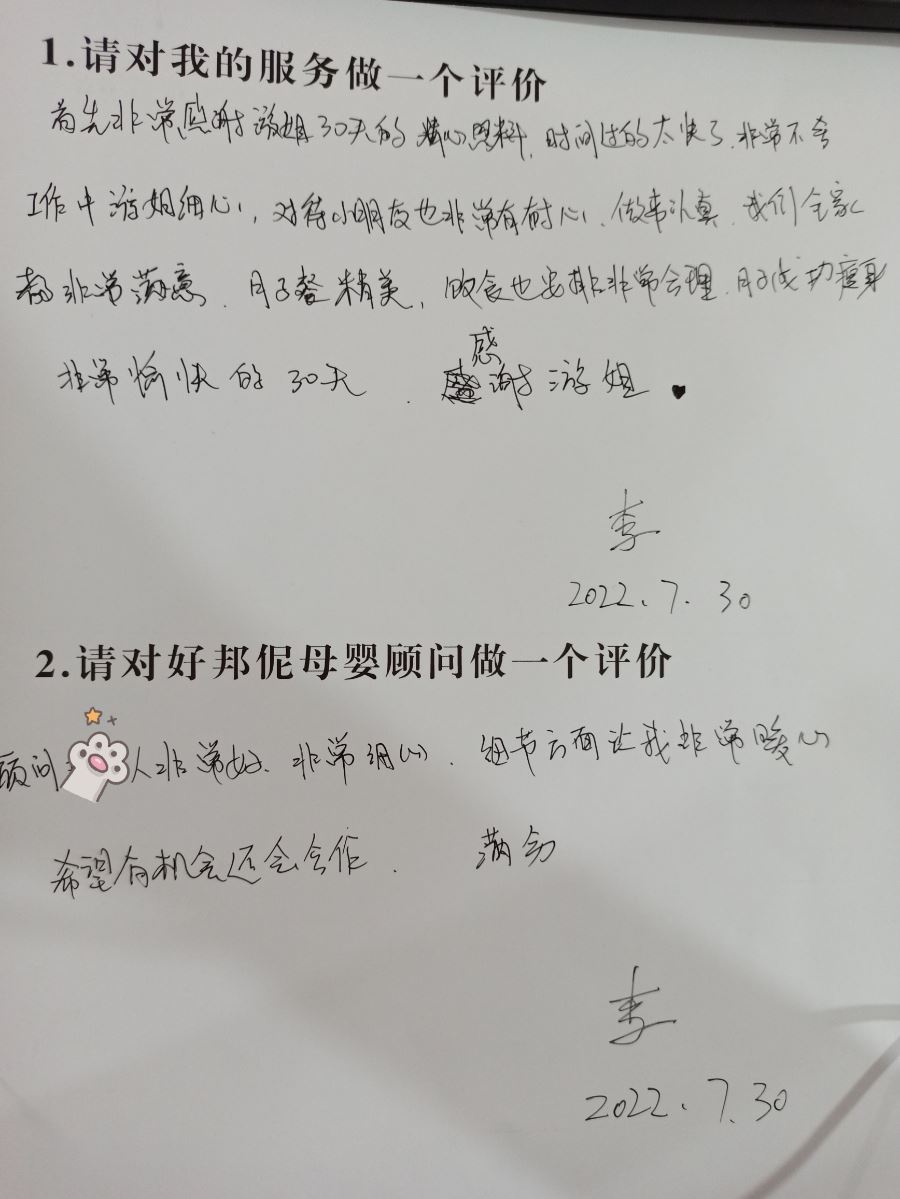 1.请对我的服务做一个评价
首先非常感谢游姐30天的精心照料,时间过的太快了.非常不舍
工作中游姐细心,对待小朋友也非常有耐心.做事认真.我们全家
都非常满意.月子餐精美,饮食也安排非常合理.月子成功瘦身
非常愉快的30天.感谢游姐♥
李
2022.7.30
2.请对好邦伲母婴顾问做一个评价
顾问 人非常好.非常细心.细节方面让我非常暖心
希望有机会还会合作.满分
李
2022.7.30